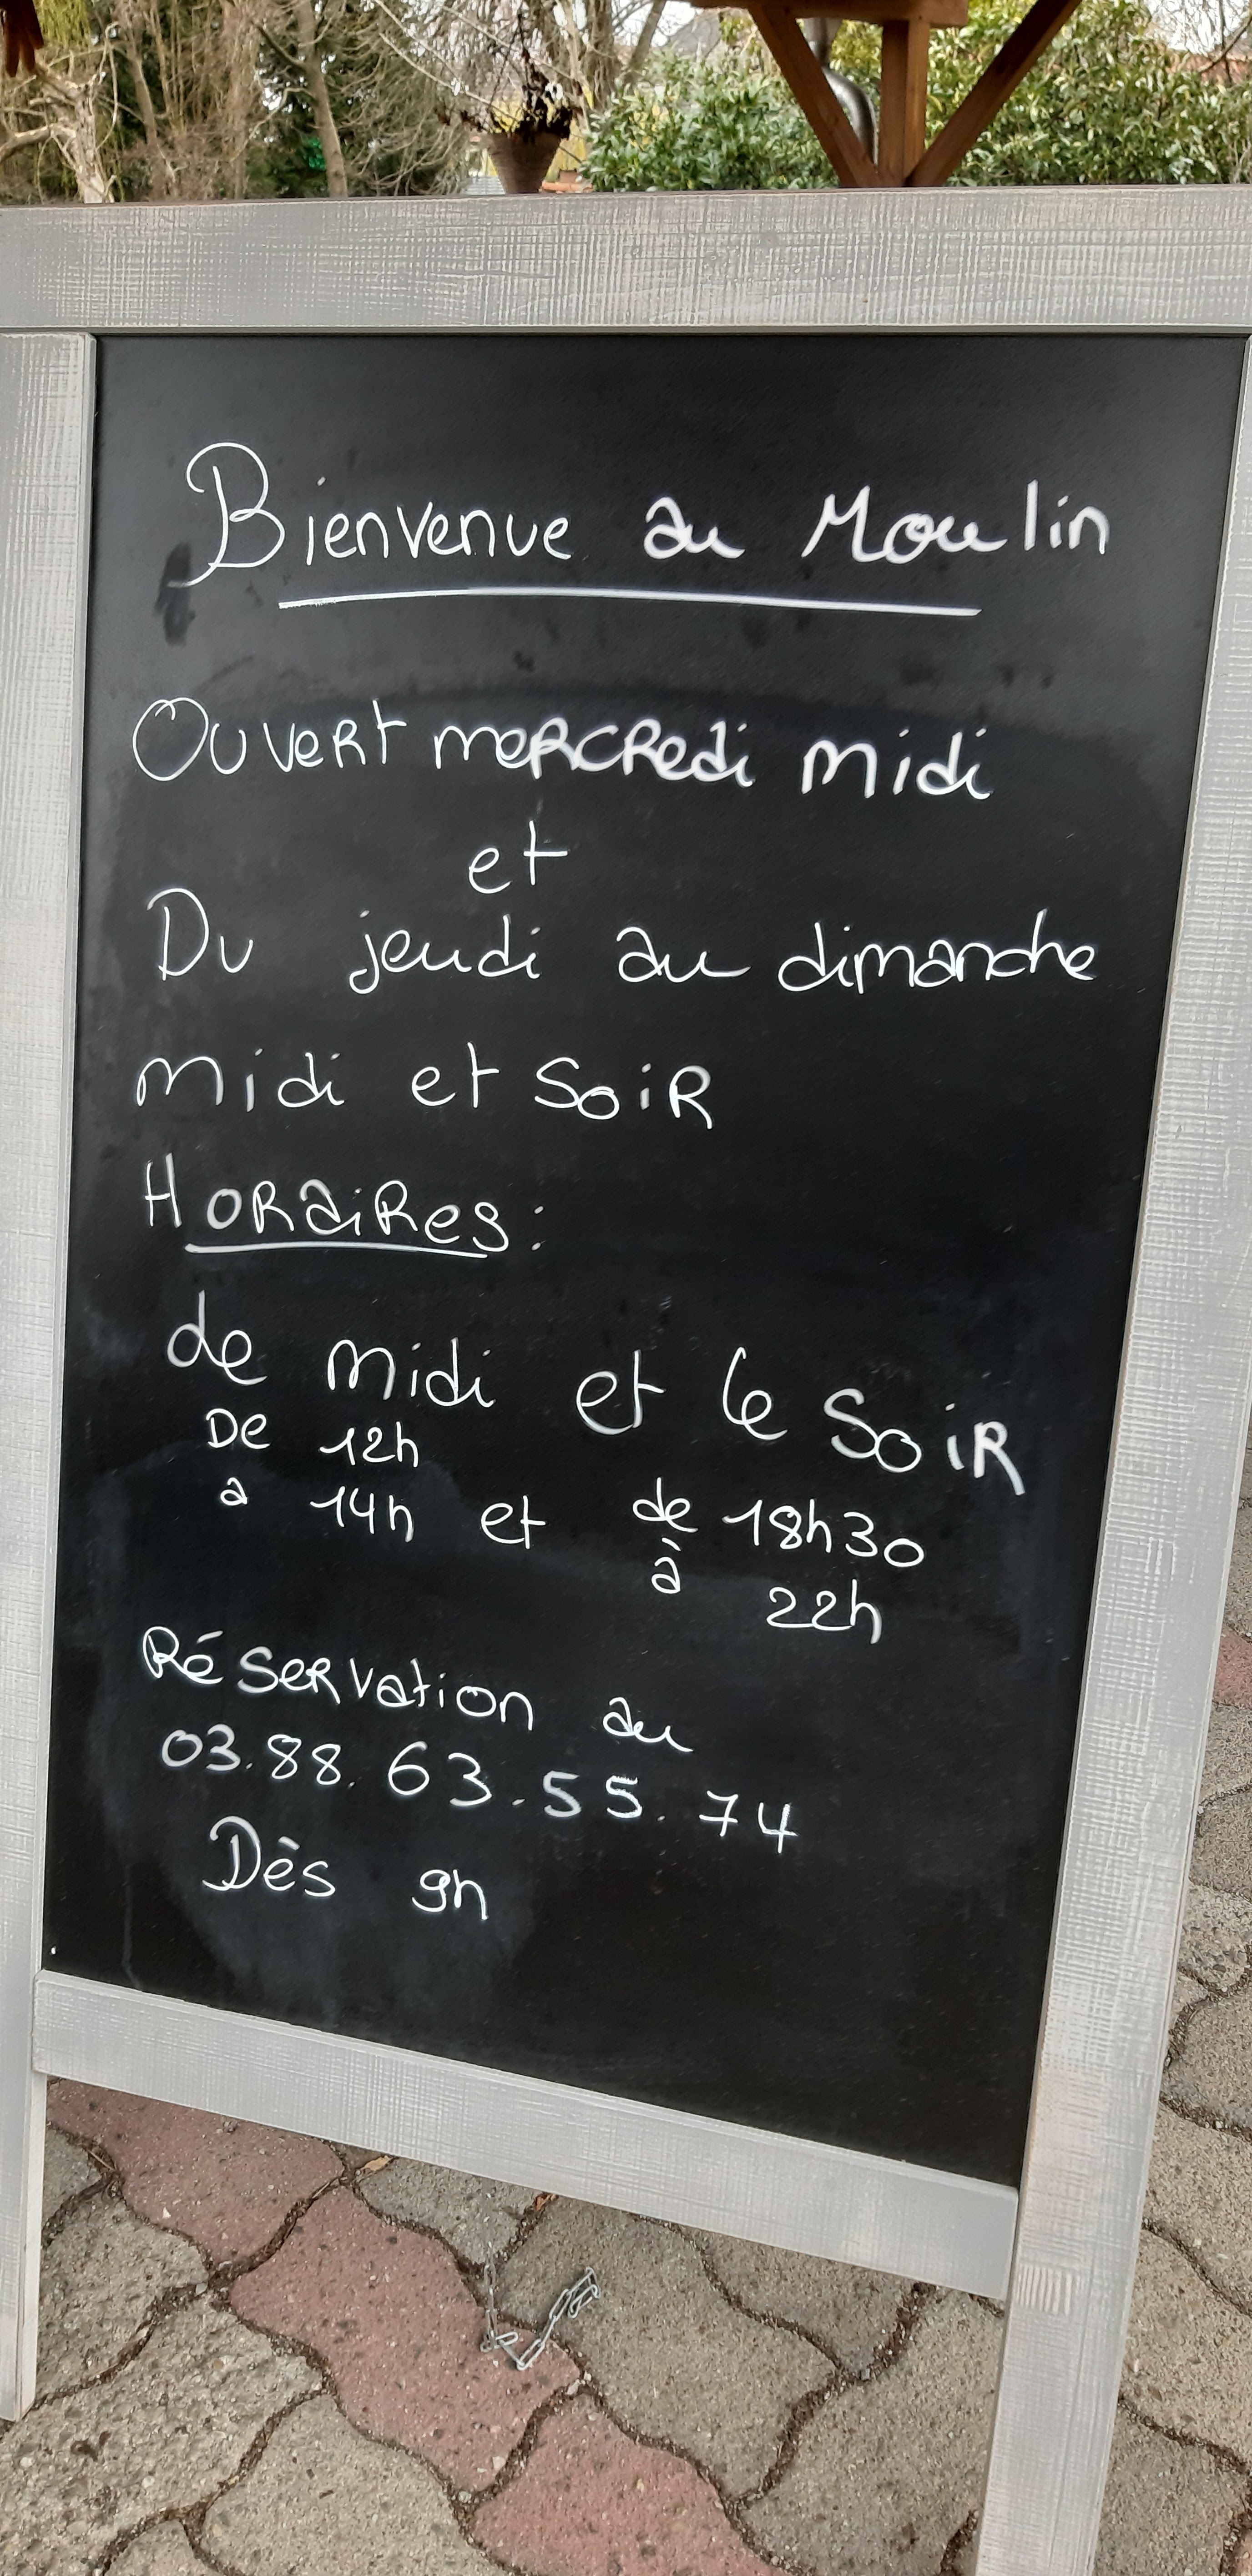 Bienvenue au Moulin
Ouvert mercredi midi
et
Du jeudi au dimanche
midi et Soir
Horaires :
de midi et le Soir
De 12h
a 14h et de 18h30
à 22h
Réservation au
03.88.63.55.74
Dès 9h